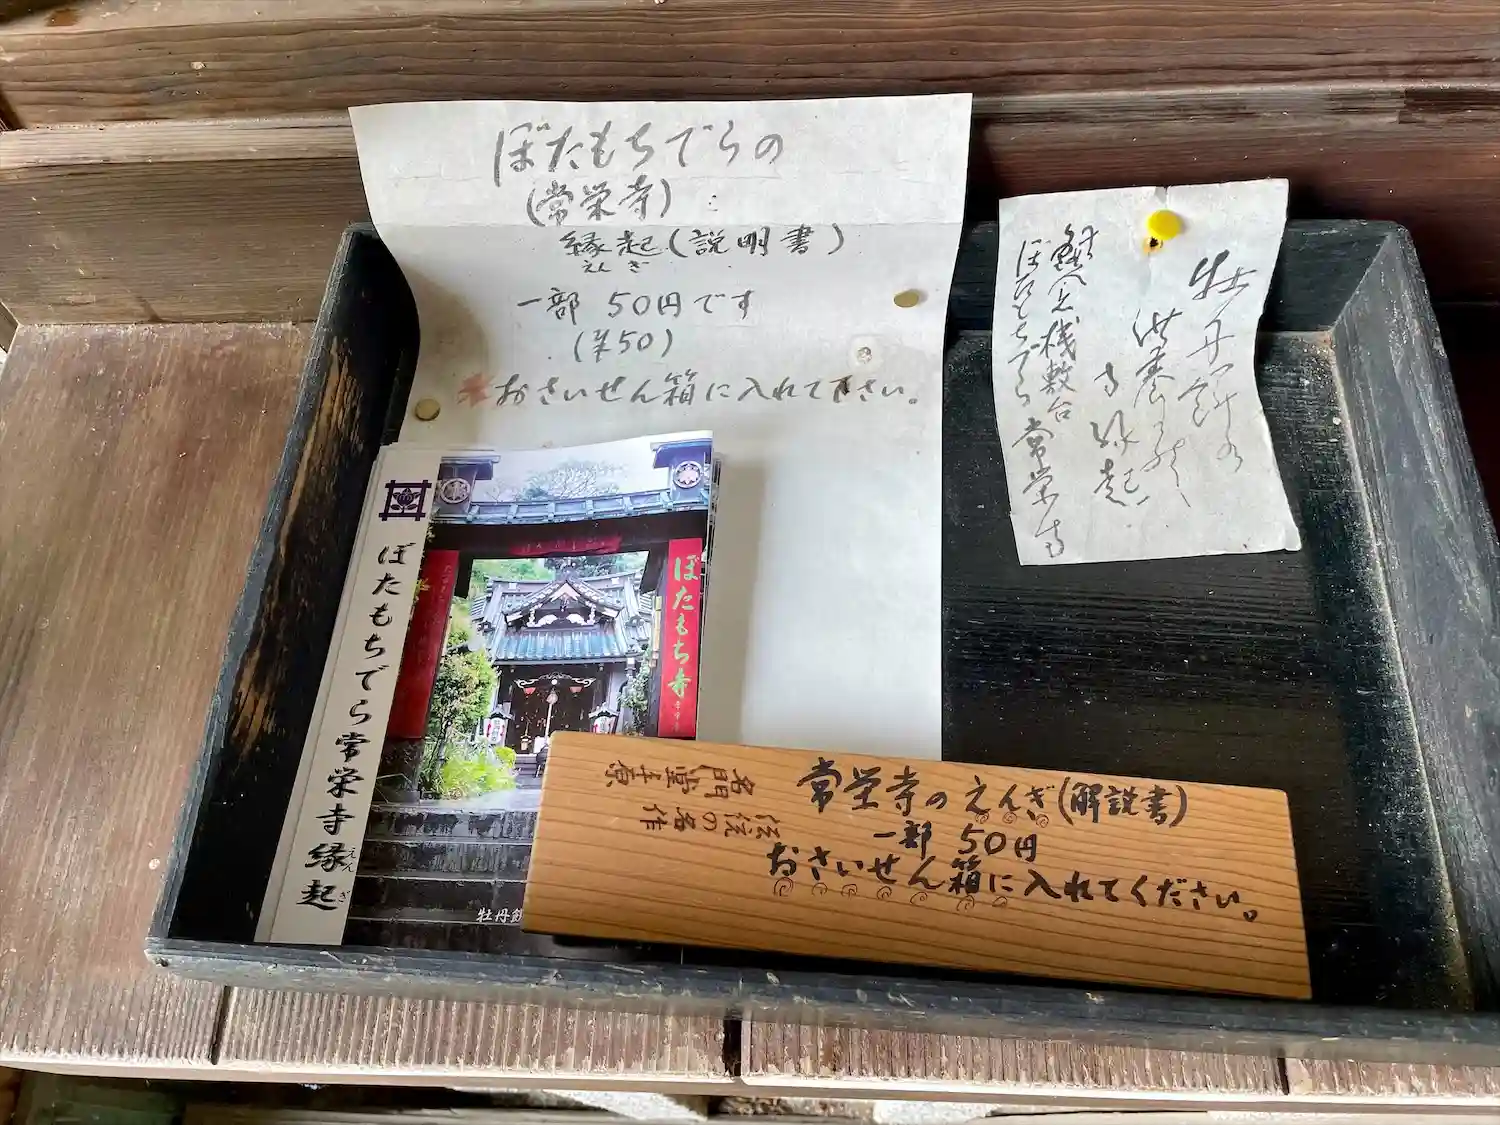 ぼたもちでらの
(常栄寺)
縁起(説明書)
えんぎ
一部 50円です
(¥50)
*おさいせん箱に入れて下さい。
牡丹餅の
供養
寺縁起
桟敷台
ぼたもちでら 常栄寺
ぼたもちでら 常栄寺 縁起
えんぎ
ぼたもち寺
牡丹餅
常栄寺のえんぎ(解説書)
一部 50円
おさいせん箱に入れてください。
の名作